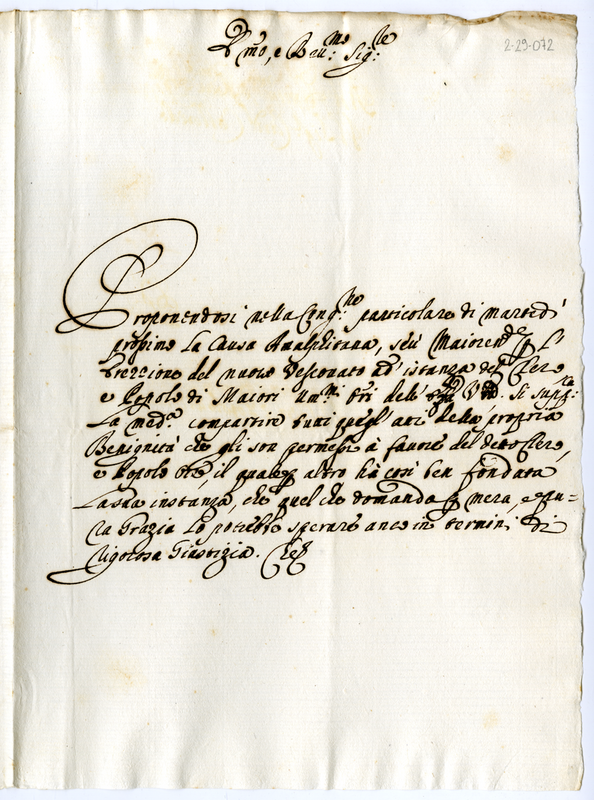 Em̃o, e Reu:mo Sig:re
2-29-072
Proponendosi nella Cong:ne particolare di martedì
prossimo la Causa Amalphitana, seù Maioren
l'Erezzione del nuouo Vescouato ad' istanza del Clero
e Popolo di Maiori Um:mi Ori dell' V. Si supp:ca
la med:a compartire tutti quegl' atti della propria
Benignità che gli son permessi à fauore del detto Clero,
e Popolo Ore, il quale p altro hà così ben fondata
la sua instanza, che quel che domanda p mera, e pu=
ra Grazia lo potrebbe sperare anco in termini di
rigorosa Giustizia.